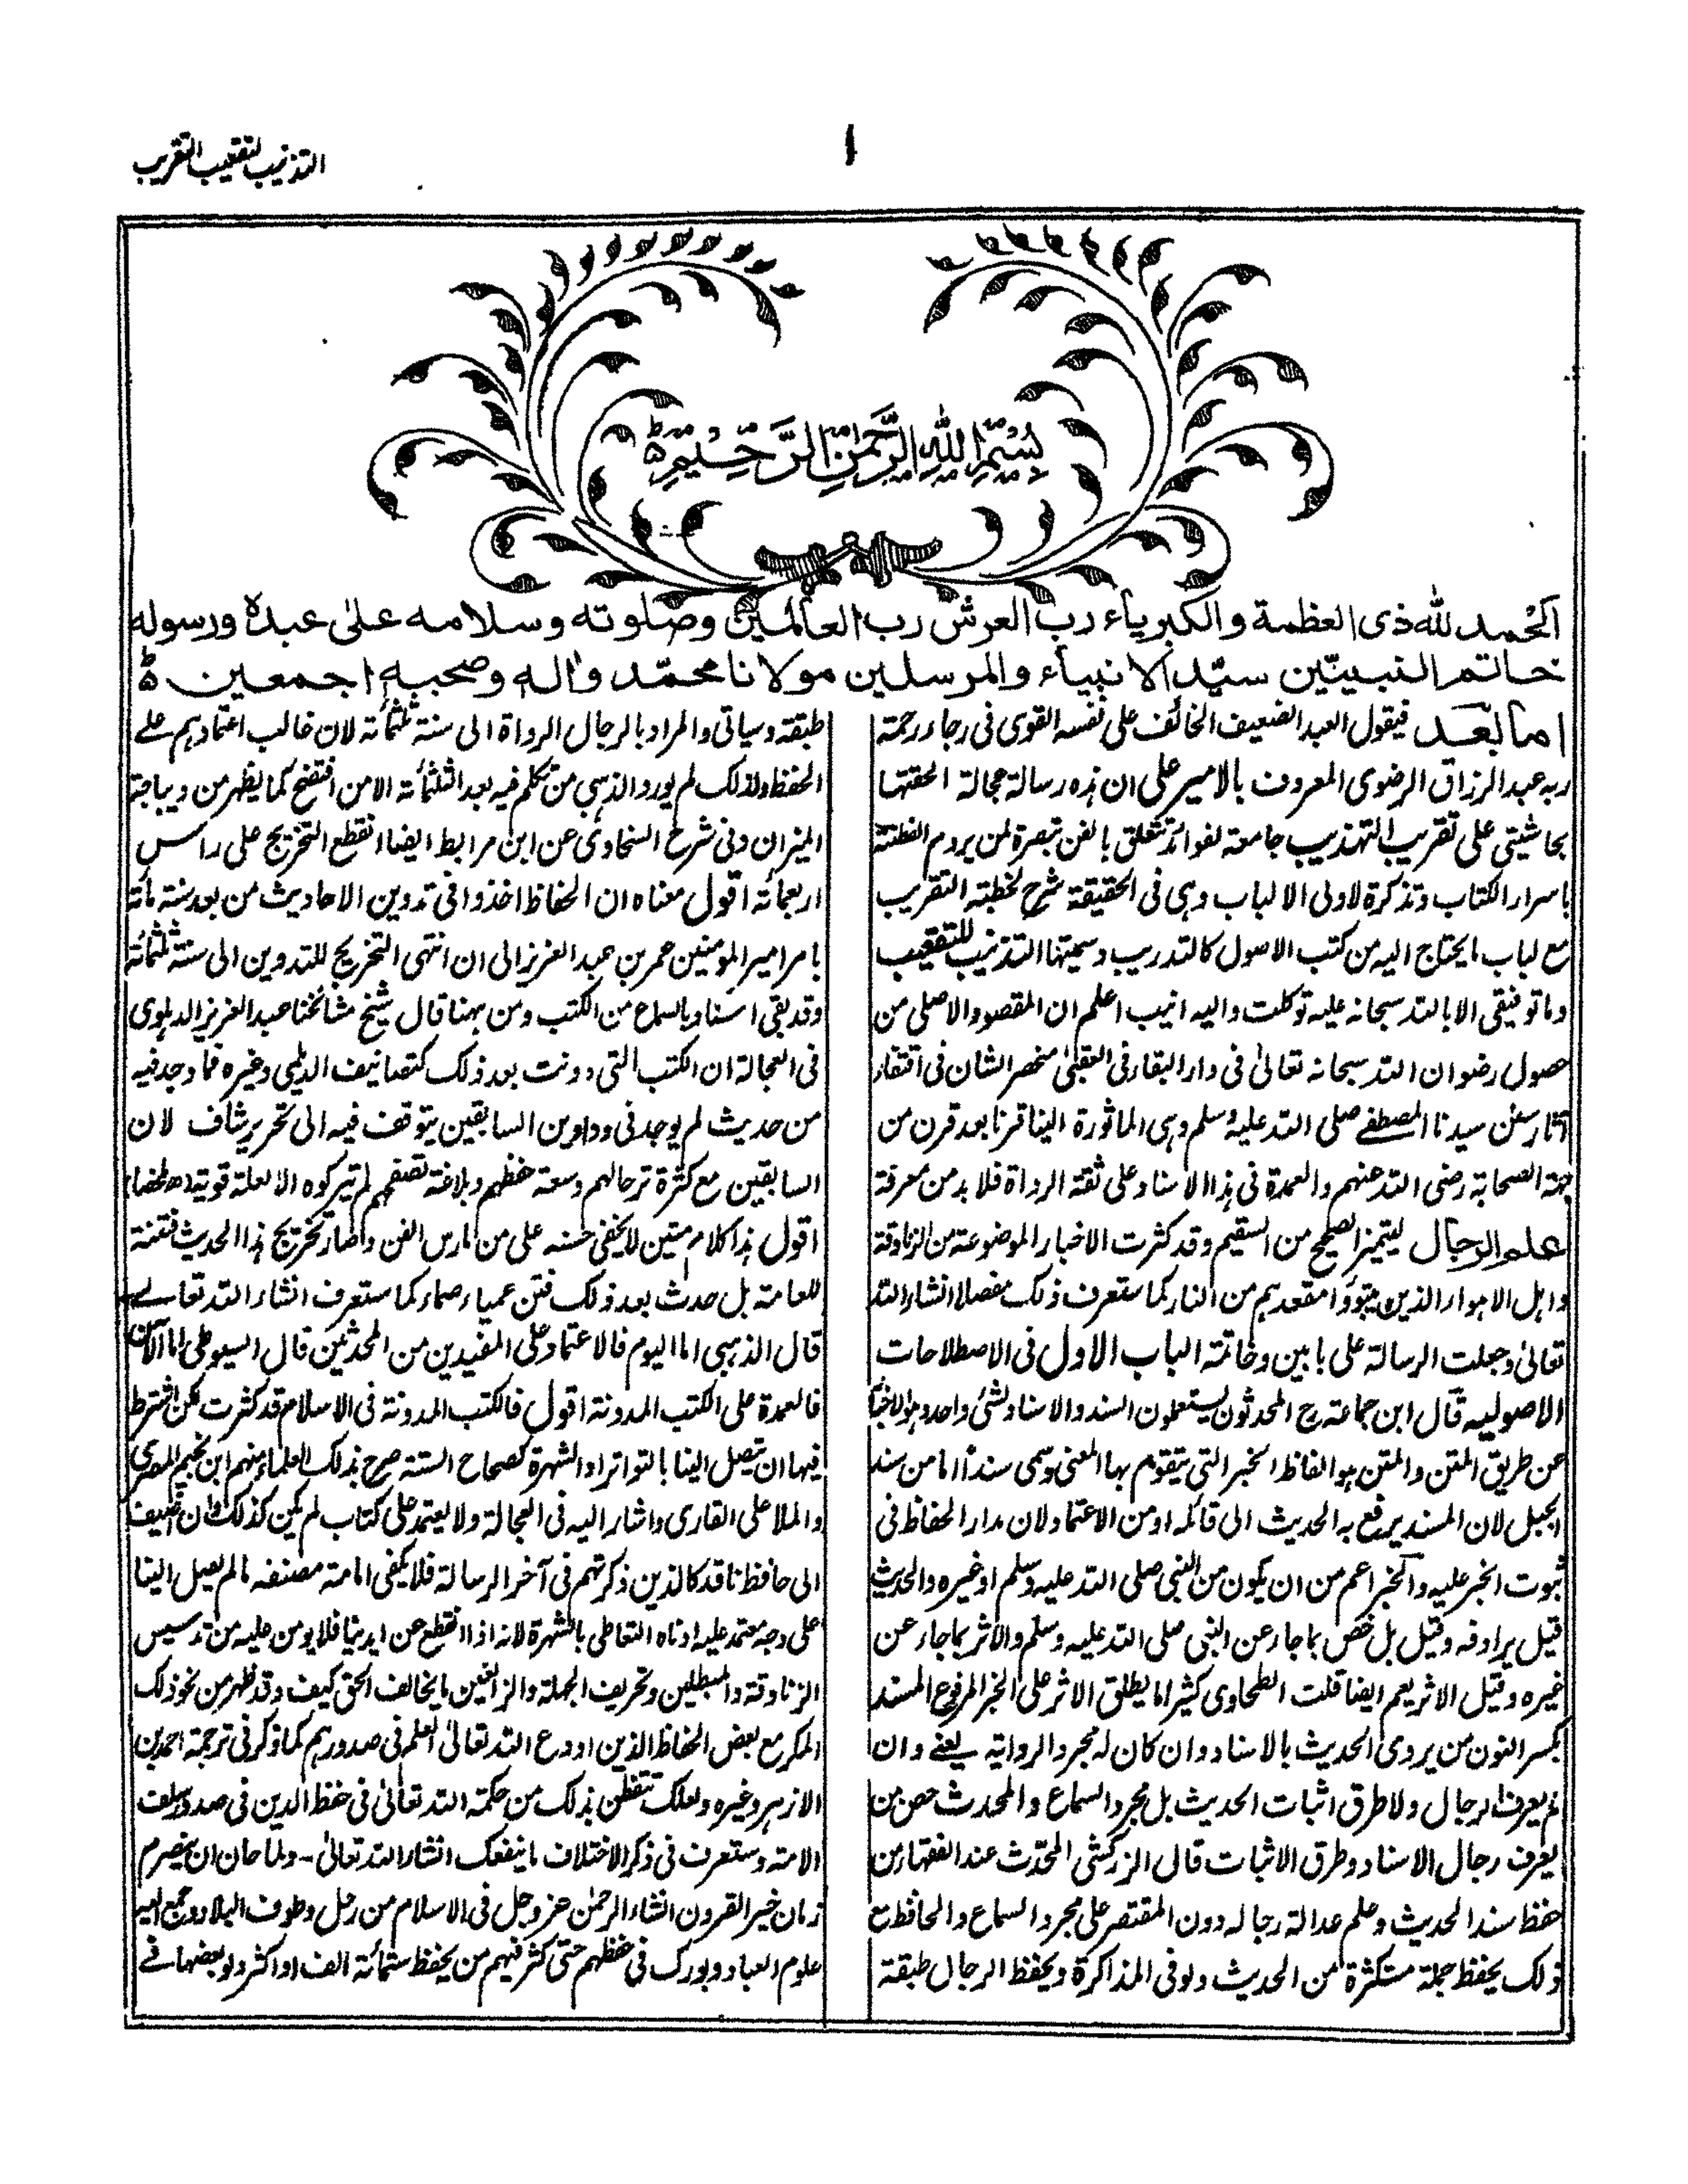 التذنيب لتقعيب التقريب
١
بِسْمِ اللهِ الرَّحْمٰنِ الرَّحِيْمِ ط
الحمد لله ذى العظمة والكبرياء رب العرش رب العالمين وصلوته وسلامه على عبده ورسوله
خاتم النبيين سيد الانبياء والمرسلين مولانا محمد واله وصحبه اجمعين ط
اما بعد فيقول العبد الضعيف الخائف على نفسه القوى فى رجاء رحمة
ربه عبد الرزاق الرضوى المعروف بالامير على ان هذه رسالة عجالة الحقتها
بحاشيتى على تقريب التهذيب جامعة لفوائد تتعلق بالفن تبصرة لمن يروم الفطنة
باسرار الكتاب وتذكرة لاولى الالباب وهى فى الحقيقة شرح لخطبة التقريب
مع لباب ما يحتاج اليه من كتب الاصول كالتدريب وسميتها التذنيب للتقعيب
وما توفيقى الا بالله سبحانه عليه توكلت واليه انيب اعلم ان المقصود الاصلى من
حصول رضوان الله سبحانه تعالىٰ فى دار البقاء فى العقبىٰ منحصر الشان فى اقتفار
آثار سنن سيدنا المصطفے صلى الله عليه وسلم وهى الماثورة الينا قرنا بعد قرن من
جهة الصحابة رضى الله عنهم والعمدة فى هذا الاسناد على ثقة الرواة فلا بد من معرفة
علم الرجال ليتميز الصحيح من السقيم وقد كثرت الاخبار الموضوعة من الزنادقة
واهل الاهواء الذين تبوؤا مقعدهم من النار كما ستعرف ذلك مفصلا انشاء الله
تعالىٰ وجعلت الرسالة على بابين وخاتمة الباب الاول فى الاصطلاحات
الاصولية قال ابن جماعة رح المحدثون يستعملون السند والاسناد لشئ واحد وهو الاخبار
عن طريق المتن والمتن هو الفاظ الخبر التى يتقوم بها المعنى وسمى سنداً اما من سند
الجبل لان المسند يرفع به الحديث الى قائله او من الاعتماد لان مدار الحفاظ فى
ثبوت الخبر عليه والخبر اعم من ان يكون من النبى صلى الله عليه وسلم او غيره والحديث
قيل يرادفه وقيل بل خص بما جاء عن النبى صلى الله عليه وسلم والاثر بما جاء عن
غيره وقيل الاثر يعم ايضا قلت الطحاوى كثيرا ما يطلق الاثر على الخبر المرفوع المسند
بكسر النون من يروى الحديث بالاسناد وان كان له مجرد الرواية يعنے وان
لم يعرف الرجال ولا طرق اثبات الحديث بل مجرد السماع والمحدث خص بمن
يعرف رجال الاسناد وطرق الاثبات قال الزركشى المحدّث عند الفقهاء من
حفظ سند الحديث وعلم عدالة رجاله دون المقتصر على مجرد السماع والحافظ مع
ذلك يحفظ جملة مستكثرة من الحديث ولو فى المذاكرة ويحفظ الرجال طبقة
طبقة وسياتى والمراد بالرجال الرواة الى سنة ثلثمائة لان غالب اعتمادهم علے
الحفظ ولذلك لم يورد الذهبى من تكلم فيه بعد الثلثمائة الا من افتضح كما يظهر من ديباجة
الميزان وفى شرح السخاوى عن ابن مرابط ايضا انقطع التخريج على راس
اربعمائة اقول معناه ان الحفاظ اخذوا فى تدوين الاحاديث من بعد سنة مائة
بامر امير المومنين عمر بن عبد العزيز الى ان انتهى التخريج للتدوين الى سنة ثلثمائة
وقد بقى اسناد بالسماع من الكتب ومن ههنا قال شيخ مشائخنا عبد العزيز الدهلوى
فى العجالة ان الكتب التى دونت بعد ذلك كتصانيف الديلمى وغيره فما وجد فيه
من حديث لم يوجد فى دواوين السابقين يتوقف فيه الى تحرير شاف لان
السابقين مع كثرة ترحالهم وسعة حفظهم وبلاغة تصفحهم لم يتركوه الا لعلة قوية اھ ملخصا
اقول هذا كلام متين لا يخفى حسنه على من مارس الفن واضار تخريج هذا الحديث فتنة
للعامة بل حدث بعد ذلك فتن عمياء صماء كما ستعرف انشاء الله تعالےٰ
قال الذهبى اما اليوم فالاعتماد على المفيدين من المحدثين قال السيوطى اما الآن
فالعمدة على الكتب المدونة اقول فالكتب المدونة فى الاسلام قد كثرت لكن اشترط
فيها ان يتصل الينا بالتواتر او الشهرة كصحاح الستة صرح بذلك العلماء منهم ابن نجيم المصرى
والملا على القارى واشار اليه فى العجالة ولا يعتمد على كتاب لم يكن كذلك وان اضيف
الى حافظ ناقد كالذين ذكرتهم فى آخر الرسالة فلا يكفى امامة مصنفه ما لم يصل الينا
على وجه معتمد عليه ادناه التعاطى بالشهرة لانه اذا انقطع عن ايدينا فلا يومن عليه من تدسيس
الزنادقة والمبطلين وتحريف الجهلة والزائغين ما يخالف الحق كيف وقد ظهر من نحو ذلك
المكر مع بعض الحفاظ الذين اودع الله تعالىٰ العلم فى صدورهم كما ذكر فى ترجمة احمد بن
الازهر وغيره ولعلك تتفطن بذلك من حكمة الله تعالىٰ فى حفظ الدين فى صدور سلف
الامة وستعرف فى ذكر الاختلاف ما ينفعك انشاء الله تعالىٰ - ولما حان ان ينصرم
زمان خير القرون انشاء الرحمٰن عز وجل فى الاسلام من رحل وطوف البلاد وجمع اليه
علوم العباد وبورك فى حفظهم حتى كثر فيهم من يحفظ ستمائة الف او اكثر ولو بعضها فے